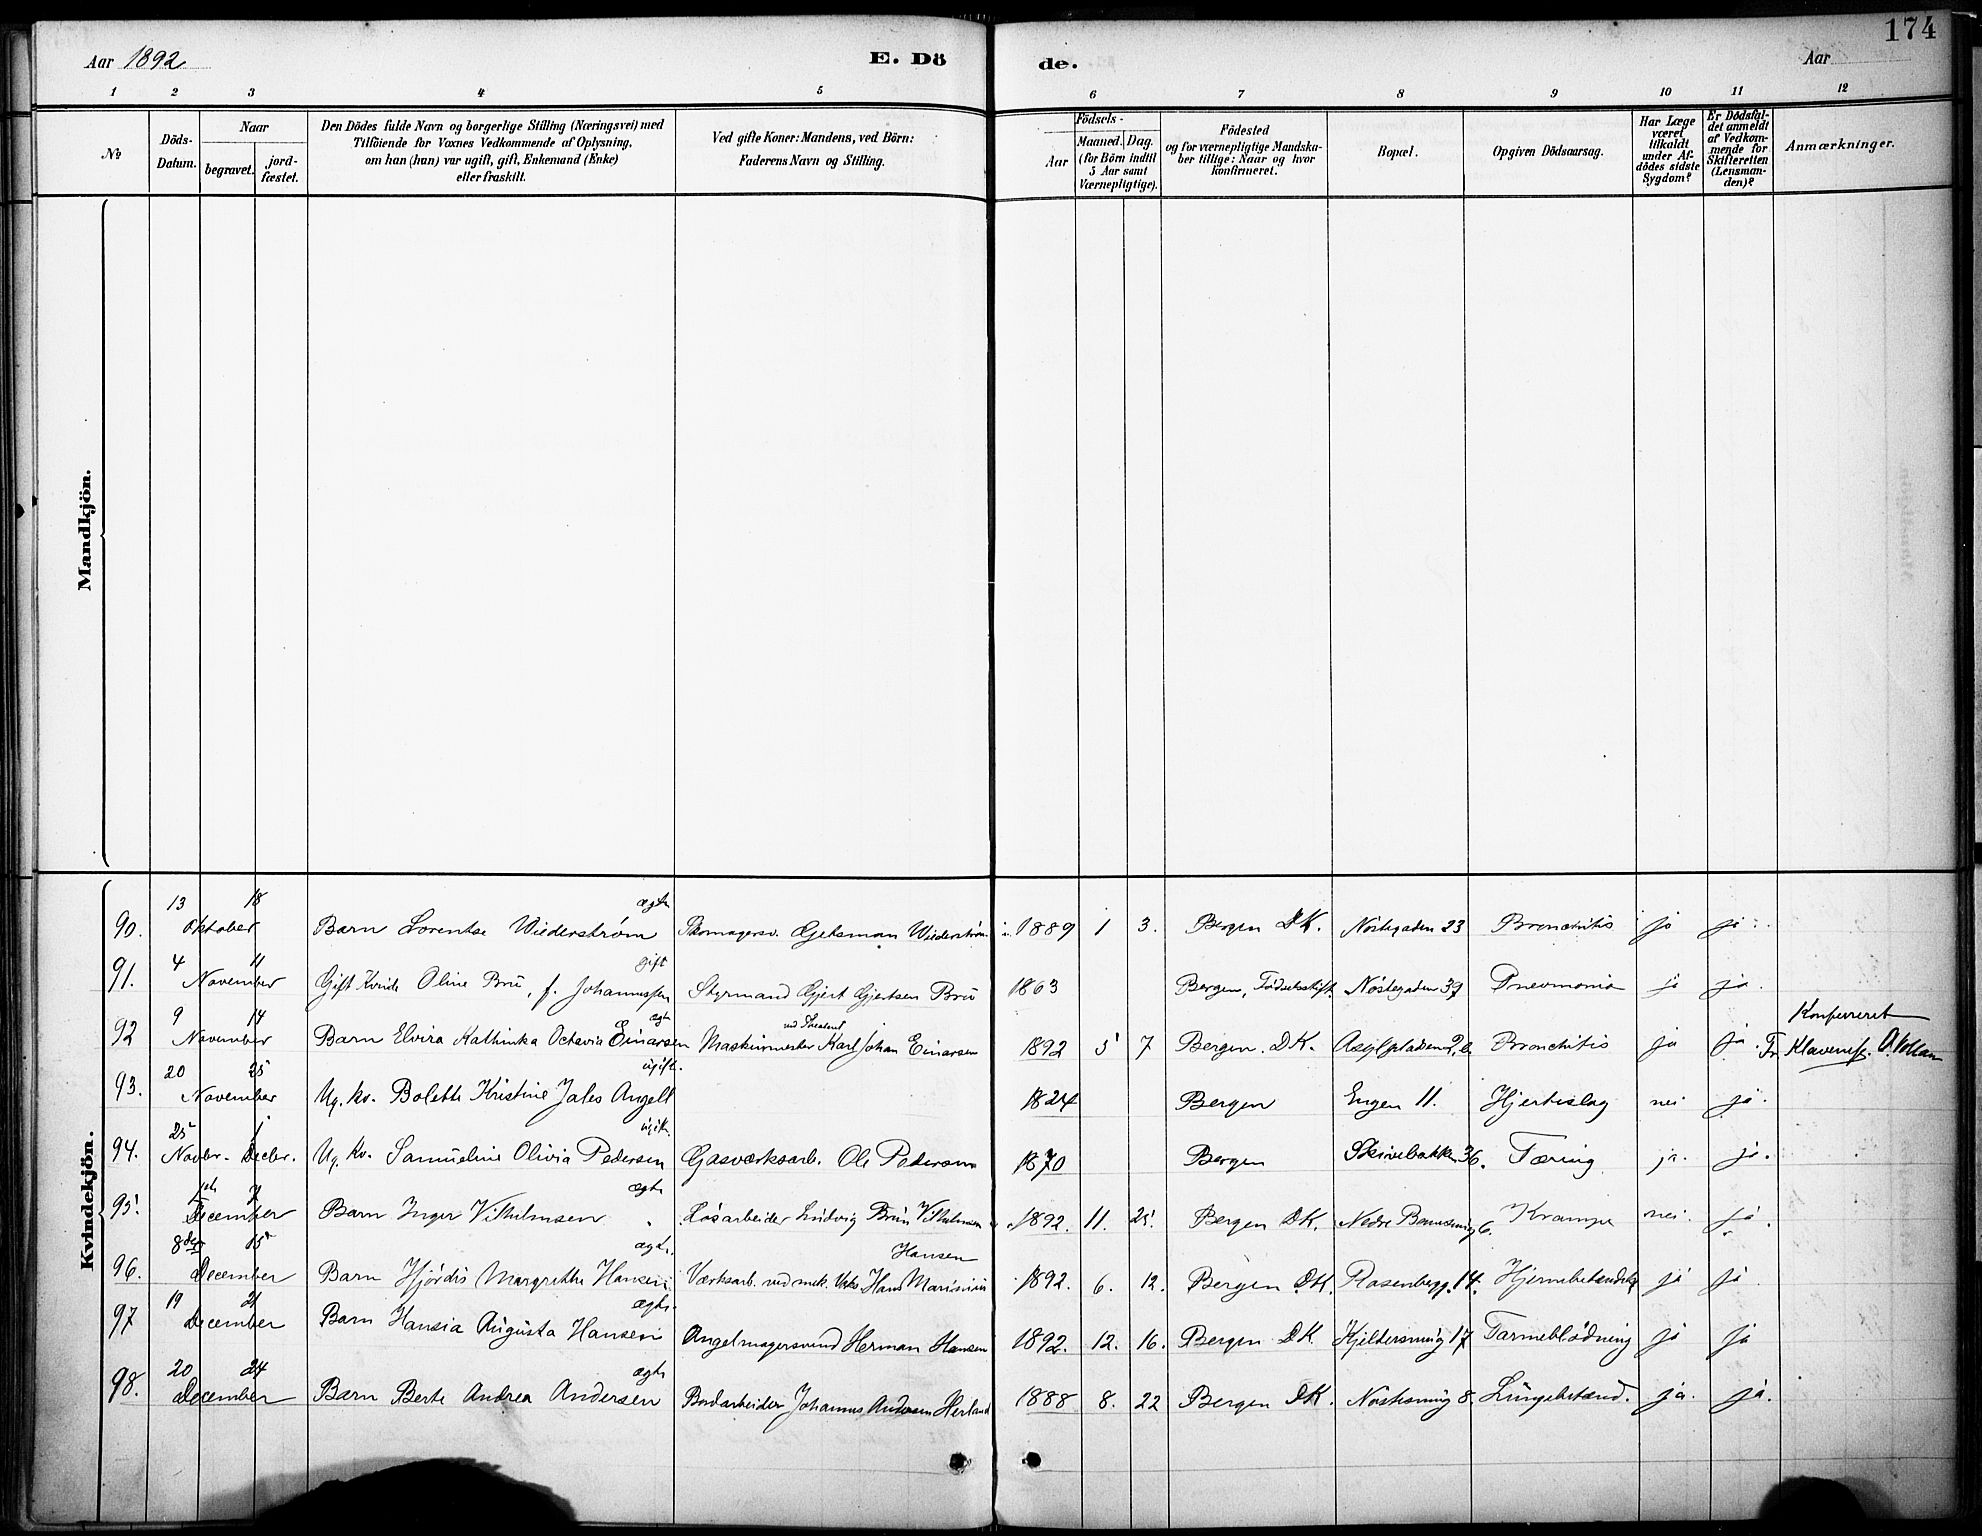 174
Aar 1892 E. Dö de. Aar
1 2 3 4 5 6 7 8 9 10 11 12
No
Döds-Datum.
Naar
begravet. jord-fæstet.
Den Dödes fulde Navn og borgerlige Stilling (Næringsvei) med
Tilföiende for Voxnes Vedkommende af Oplysning,
om han (hun) var ugift, gift, Enkemand (Enke)
eller fraskilt.
Ved gifte Koner: Mandens, ved Börn:
Faderens Navn og Stilling.
Födsels-
Aar Maaned. Dag.
(for Börn indtil
5 Aar samt
Værnepligtige).
Födested
og for værnepligtige Mandska-
ber tillige: Naar og hvor
konfirmeret.
Bopæl.
Opgiven Dödsaarsag.
Har Læge
været
tilkaldt
under Af-
dödes sidste
Sygdom?
Er Dödsfal-
det anmeldt
af Vedkom-
mende for
Skifteretten
(Lensman-
den)?
Anmærkninger.
Mandkjön.
Kvindekjön.
13 18 ægte
90. Oktober Barn Lorentse Wiederstrøm Skomagersv. Gjetsman Wiederstrøm 1889 1 3. Bergen D.K. Nöstegaden 23 Bronchitis ja ja.
4 11 gift
91. November Gift Kvinde Oline Brü, f. Johannessen Styrmand Gjert Gjertsen Brü 1863 Bergen, Födselsstift. Nöstegaden 39 Pneumonia ja ja.
9 14 ægte ved Theatret Konfereret
92 November Barn Elvira Kathinka Octavia Einarsen Maskinmester Karl Johan Einarsen 1892 5 7 Bergen. D.K. Asylpladsen 2, b Bronchitis ja ja. Fr. Klaveness. O. Vollan
20 25 ugift.
93. November Ug. kv. Bolette Kristine Jales Angell 1824 Bergen Engen 11. Hjerteslag nei ja.
25 1 ugift.
94. Novbr. Decbr. Ug. Kv. Samueline Olivia Pedersen Gasværksarb. Ole Pedersen 1870 Bergen Skivebakken 36. Tæring ja. ja.
1ste 7 ægte
95. December Barn Inger Vilhelmsen Løsarbeider Ludvig Brün Vilhelmsen 1892. 11. 25. Bergen D.K. Nedre 6. Krampe nei. ja.
8de 15 ægte. Hansen
96. December Barn Hjördis Margrethe Hansen Værksarb. ved mek. Værks. Hans Marinius 1892. 6. 12. Bergen D.K. Rosenbergg. 14. Hjernebetændelse ja ja
19 21 ægte.
97 December Barn Hansia Augusta Hansen Angelmagersvend Herman Hansen 1892. 12. 16. Bergen D.K. Kjeldersmug 17 Tarmeblödning ja ja
20 24 ægte
98. December Barn Berte Andrea Andersen Bordarbeider Johannes Andersen Herland 1888 8. 22 Bergen D.K. Nöstesmug 8. Lungebetænd. ja. ja.